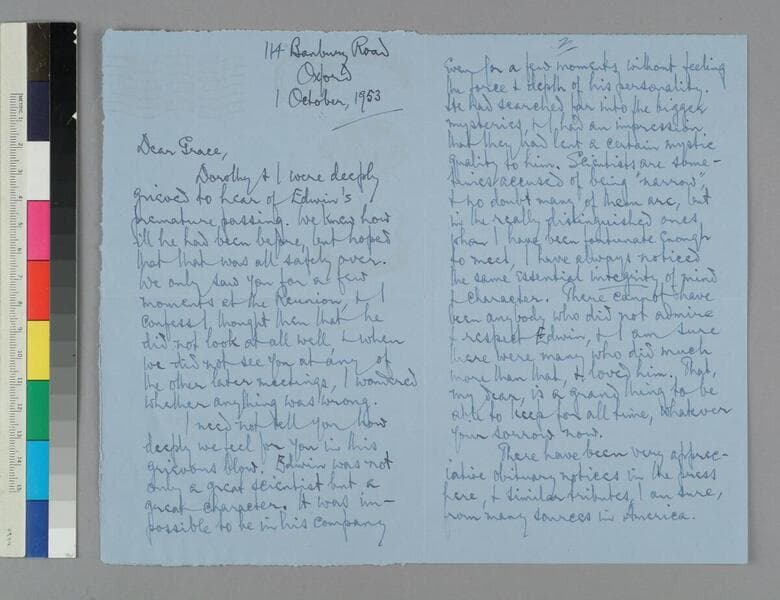 114 Banbury Road
Oxford
1 October, 1953
Dear Grace,
Dorothy & I were deeply
grieved to hear of Edwin's
premature passing. We knew how
ill he had been before, but hoped
that that was all safely over.
We only saw you for a few
moments at the Reunion, & I
confess I thought then that he
did not look at all well & when
we did not see you at any of
the other later meetings, I wondered
whether anything was wrong.
I need not tell you how
deeply we feel for you in this
grievous blow. Edwin was not
only a great scientist but a
great character. It was im-
possible to be in his company
2
even for a few moments without feeling
the force & depth of his personality.
He had searched far into the bigger
mysteries, & I had an impression
that they had lent a certain mystic
quality to him. Scientists are some-
times accused of being "narrow",
& no doubt many of them are, but
in the really distinguished ones
whom I have been fortunate enough
to meet, I have always noticed
the same essential integrity of mind
& character. There cannot have
been anybody who did not admire
& respect Edwin, & I am sure
there were many who did much
more than that, & loved him. That,
my dear, is a grand thing to be
able to keep for all time, whatever
your sorrow now.
There have been very apprec-
iative obituary notices in the press
here, & similar tributes, I am sure,
from many sources in America.